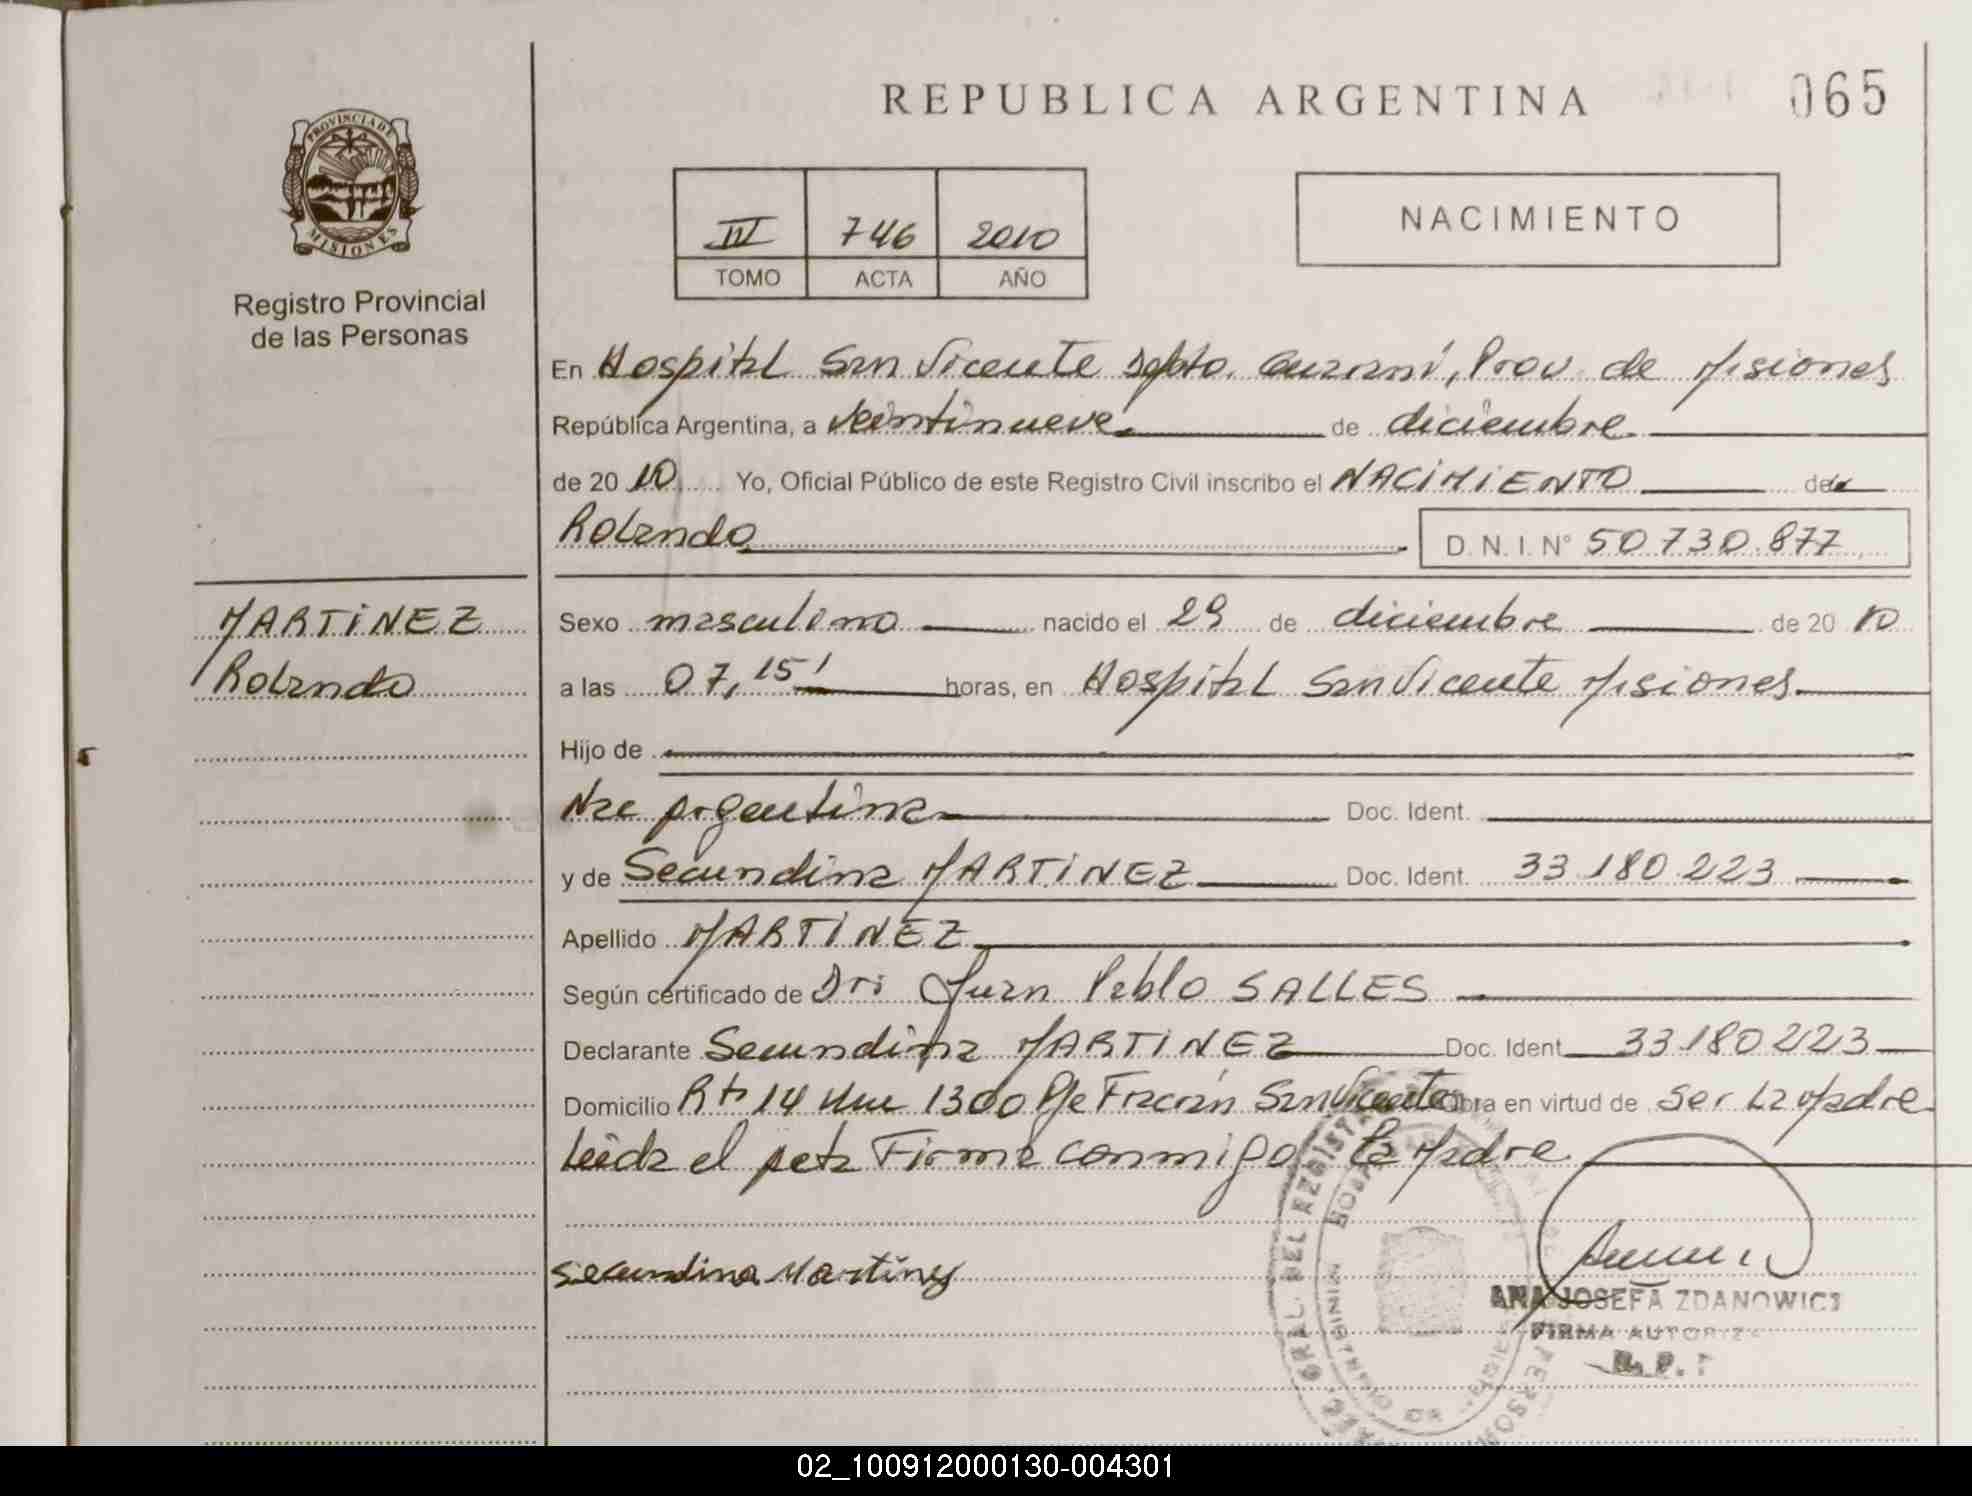 REPUBLICA ARGENTINA 065
PROVINCIA DE
MISIONES
Registro Provincial
de las Personas
IV 746 2010
TOMO ACTA AÑO
NACIMIENTO
En Hospital San Vicente Depto. Guaraní, Prov. de Misiones
República Argentina, a veintinueve de diciembre
de 2010 Yo, Oficial Público de este Registro Civil inscribo el NACIMIENTO de
Rolando D. N. I. N° 50.730.877
MARTINEZ
Rolando
Sexo masculino nacido el 29 de diciembre de 2010
a las 07,15' horas, en Hospital San Vicente Misiones
Hijo de
Nac Argentina Doc. Ident.
y de Secundina MARTINEZ Doc. Ident. 33.180.223
Apellido MARTINEZ
Según certificado de Dr: Juan Pablo SALLES
Declarante Secundina MARTINEZ Doc. Ident 33.180.223
Domicilio Rta 14 1300 Pje Fracrán San Vicente Obra en virtud de ser La Madre
Leída el Acta Firma conmigo La Madre
secundina Martines
ANA JOSEFA ZDANOWICZ
FIRMA AUTORIZ
R.P.
GRAL. DEL REGISTR
02_100912000130-004301